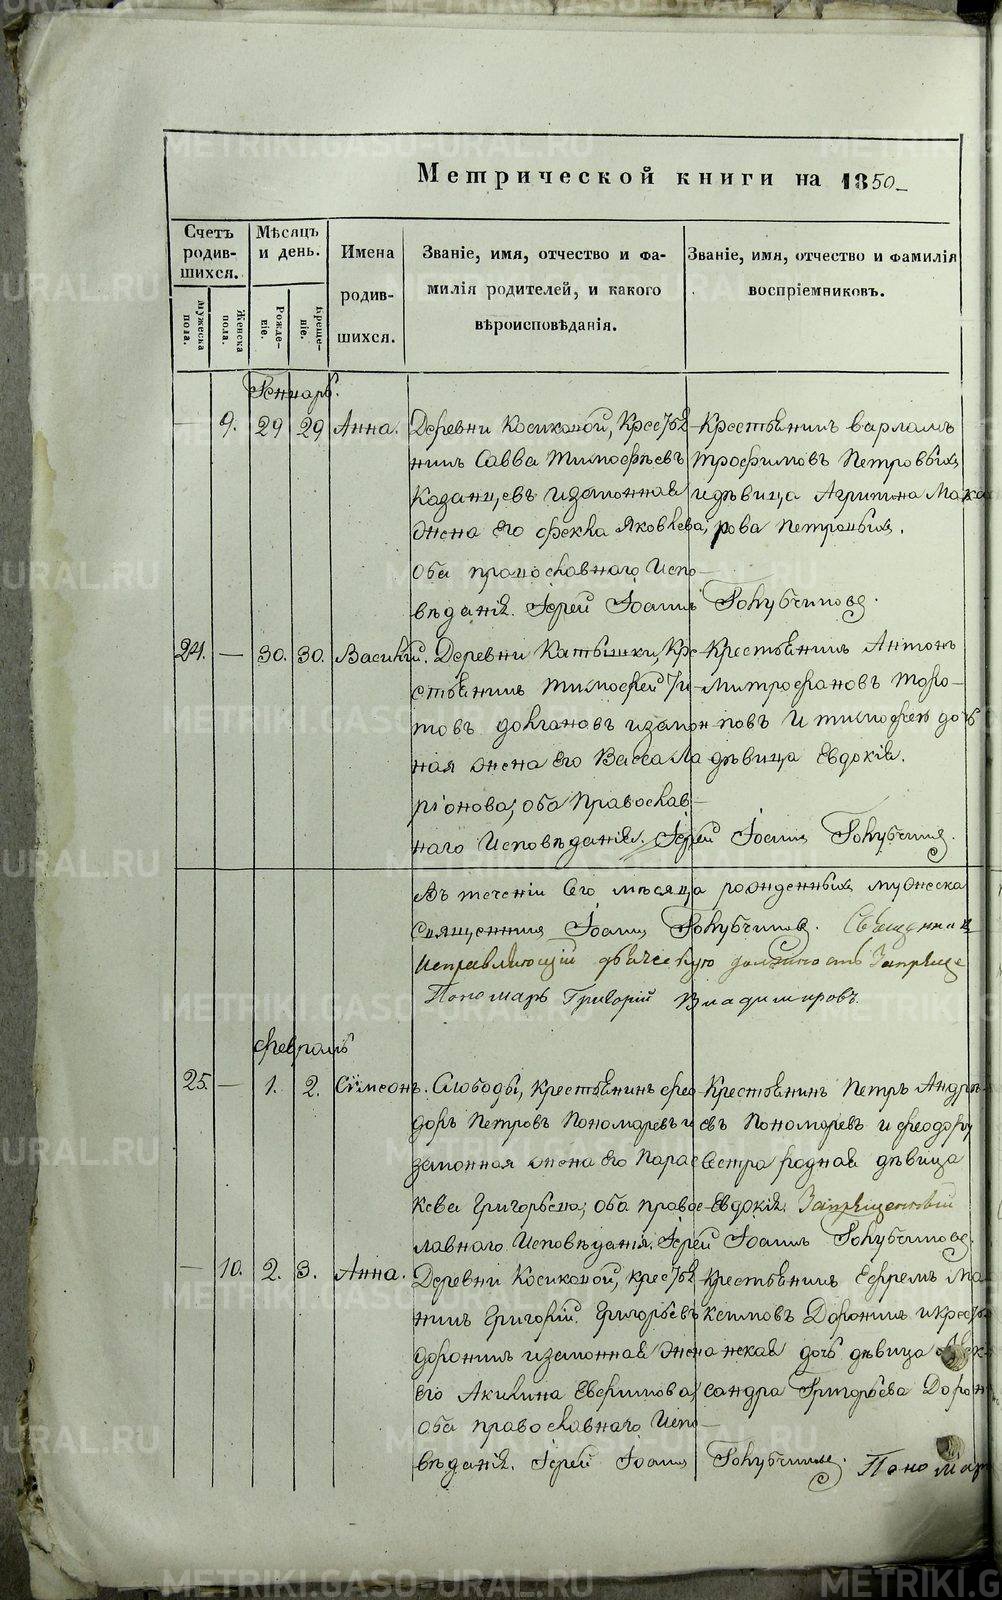 Метрической книги на 1850
Счетъ родив-шихся.
Мѣсяцъ и день.
Имена родив-шихся.
Званіе, имя, отчество и фа-
милія родителей, и какого
вѣроисповѣданія.
Званіе, имя, отчество и фамилія
воспріемниковъ.
Мужеска пола.
Женска пола.
Рожде-ніе.
Креще-ніе.
Генварь.
— 9. 29 29 Анна. Деревни Косиковой, Кресть-
нинъ Савва Тимофѣевъ
Казанцевъ и законная
жена его Фекла Яковлева,
оба православнаго Испо-
вѣданія. Іерей Іоаннъ Голубчиковъ.
Крестьянинъ Варламъ
Трофимовъ Петровыхъ
и дѣвица Агрипина Мака
рова Петровыхъ.
24. — 30. 30. Василій. Деревни Катышки, Кре-
стьянинъ Тимофей Ти-
товъ Долгановъ и закон-
ная жена его Васса Ла
ріонова, оба Православ-
наго Исповѣданія. Іерей Іоаннъ Голубчиковъ.
Крестьянинъ Антонъ
Митрофановъ Торо-
повъ и Тимофея дочь
дѣвица Евдокія.
Въ теченіи сего мѣсяца рожденныхъ мужеска
Священникъ Іоаннъ Голубчиковъ.
Исправляющій дьяческую должность
Пономарь Григорій Владимировъ.
Февраль
25. — 1. 2. Сѵмеонъ. Слободы, крестьянинъ Фео-
доръ Петровъ Пономаревъ и
законная жена его Парас
кева Григорьева; оба право-
славнаго Исповѣданія. Іерей Іоаннъ Голубчиковъ.
Крестьянинъ Петръ Андре-
евъ Пономаревъ и Феодору
Сестра родная дѣвица
Евдокія.
— 10. 2. 3. Анна. Деревни Косиковой, кресть-
нинъ Григорій Григорьевъ
Доронинъ и законная жена
его Акилина
оба православнаго Испо-
вѣданія. Іерей Іоаннъ Голубчиковъ.
Крестьянинъ Ефремъ Ма
ксимовъ Доронинъ и кресть
нская дочь дѣвица Алек
сандра Григорьева Дорон
Пономарь
METRIKI.GASO-URAL.RU